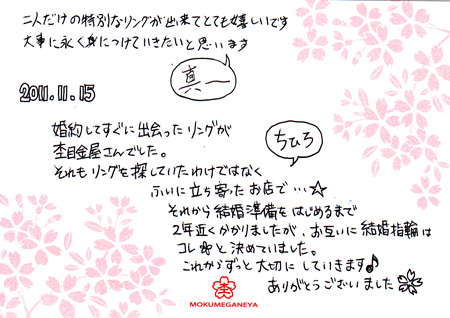 二人だけの特別なリングが出来てとても嬉しいです
大事に永く身につけていきたいと思います
真一
2011.11.15
婚約してすぐに出会ったリングが
杢目金屋さんでした。
ちひろ
それもリングを探していたわけではなく
ふいに立ち寄ったお店で…☆
それから結婚準備をはじめるまで
2年近くかかりましたが、お互いに結婚指輪は
コレ✿と決めていました。
これからずっと大切にしていきます♪
ありがとうございました
MOKUMEGANEYA